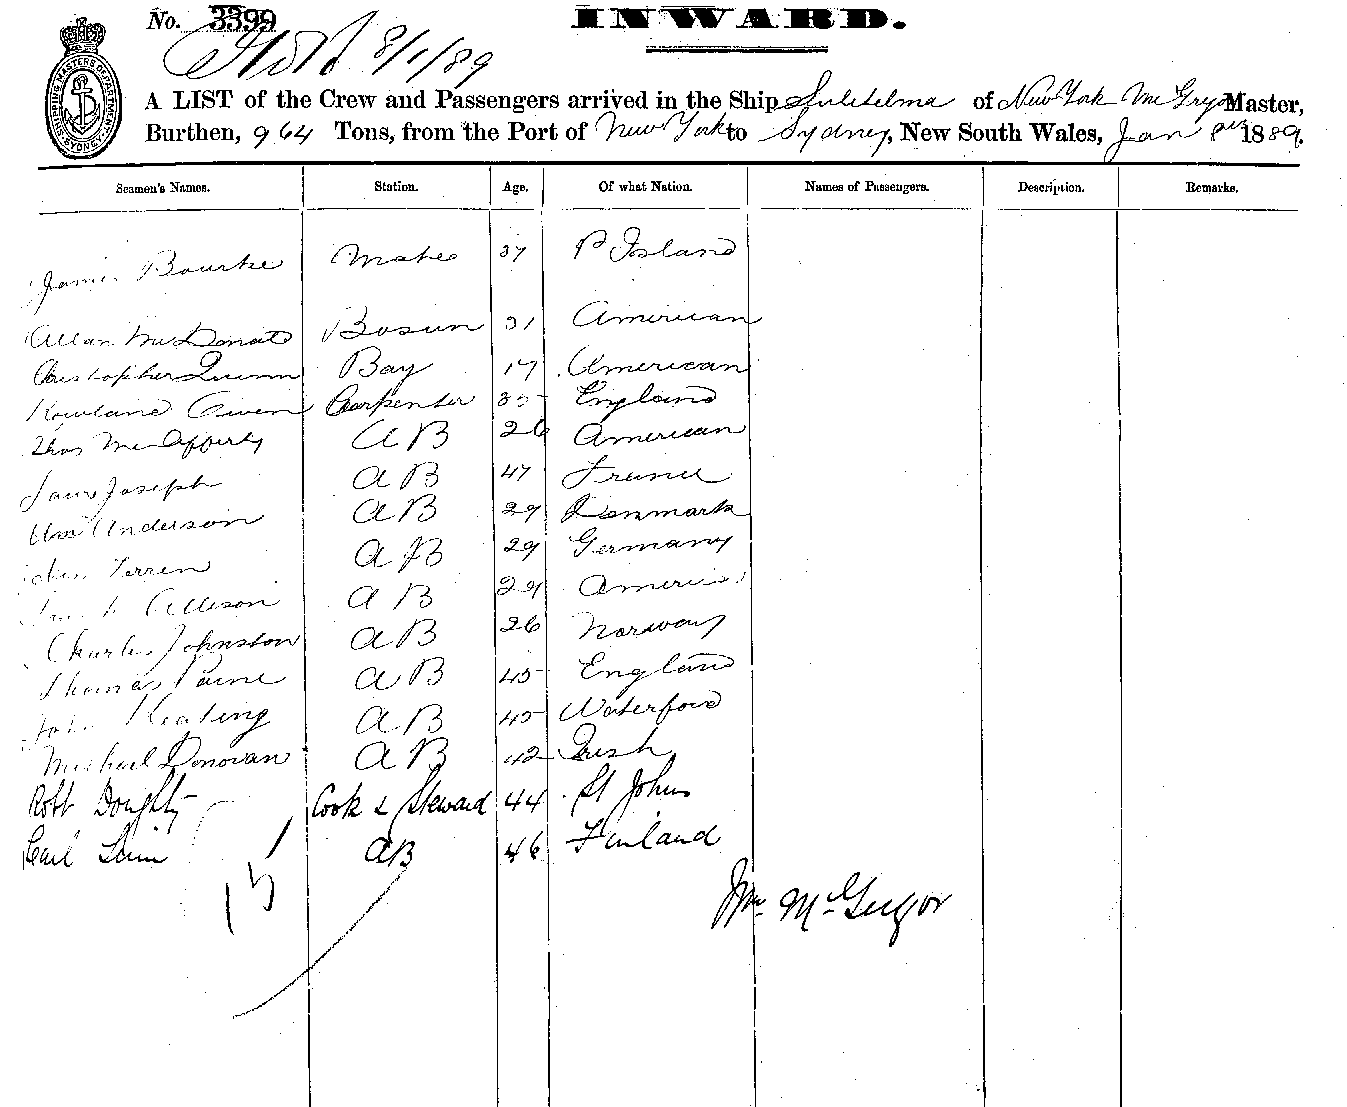 No. 3399
INWARD.
8/1/89
SHIPPING MASTERS DEPARTMENT SYDNEY
A LIST of the Crew and Passengers arrived in the Ship Sulitelma of New York McGregor Master,
Burthen, 964 Tons, from the Port of New York to Sydney, New South Wales, Jan 8th 1889.
Seamen's Names. Station. Age. Of what Nation. Names of Passengers. Description. Remarks.
James Bourke Mate 37 P Island
Allan McDonald Bosun 31 American
Christopher Quinn Boy 17 American
Rowland Owen Carpenter 35 England
Thos McCafferty AB 26 American
Joseph AB 47 France
Wm Anderson AB 29 Denmark
AB 29 Germany
Allison AB 29 America
Charles Johnston AB 26 Norway
Thomas Paine AB 45 England
John Keating AB 45 Waterford
Michael Donovan AB 42 Irish
Robt Doughty Cook & Steward 44 St Johns
Carl AB 46 Finland
15
Jno. McGregor